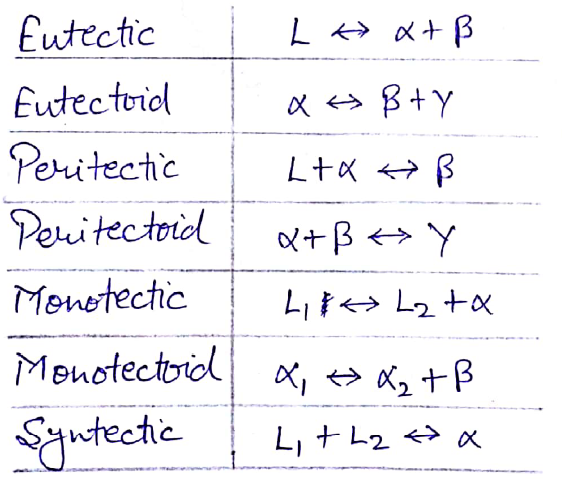 Eutectic L ↔ α + β
Eutectoid α ↔ β + γ
Peritectic L + α ↔ β
Peritectoid α + β ↔ γ
Monotectic L₁ ↔ L₂ + α
Monotectoid α₁ ↔ α₂ + β
Syntectic L₁ + L₂ ↔ α